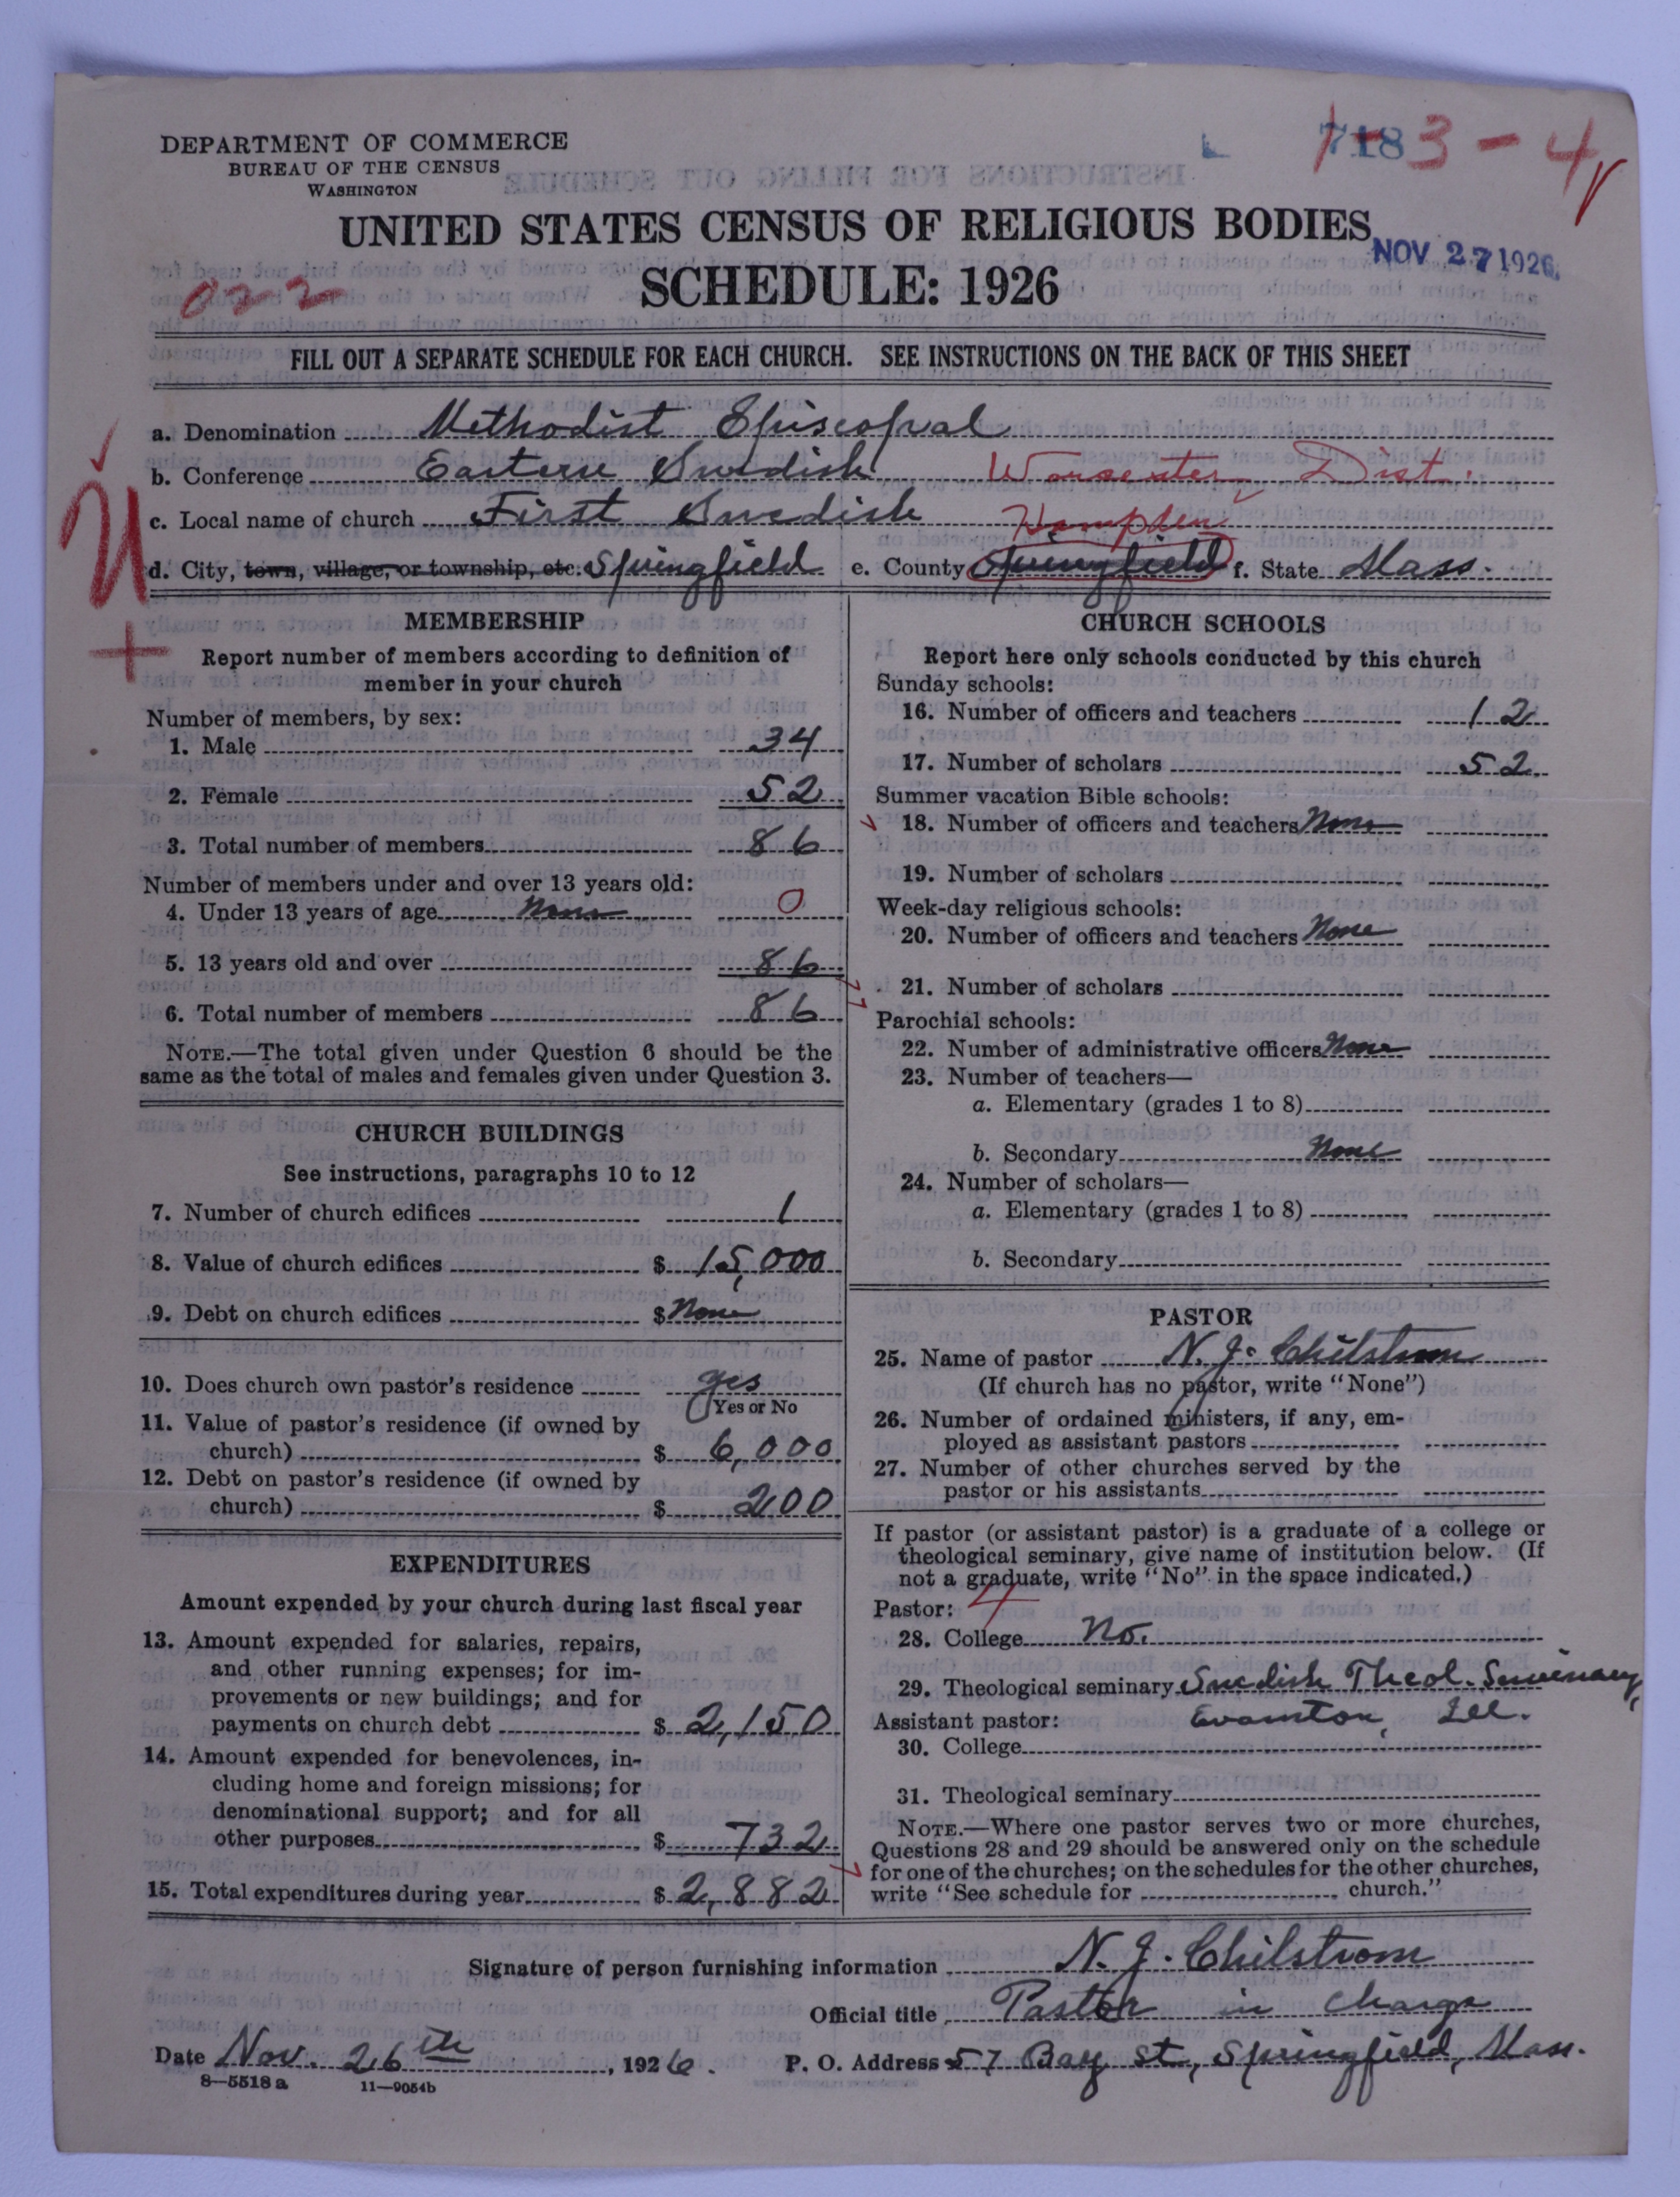 DEPARTMENT OF COMMERCE
BUREAU OF THE CENSUS
WASHINGTON
7183
1-3-4
UNITED STATES CENSUS OF RELIGIOUS BODIES
NOV 27 1926
SCHEDULE: 1926
022
FILL OUT A SEPARATE SCHEDULE FOR EACH CHURCH. SEE INSTRUCTIONS ON THE BACK OF THIS SHEET
a. Denomination Methodist Episcopal
b. Conference Eastern Swedish Worcester Dist.
c. Local name of church First Swedish Hampden
d. City, town, village, or township, etc. Springfield e. County Springfield f. State Mass.
U
+
MEMBERSHIP
Report number of members according to definition of
member in your church
Number of members, by sex:
1. Male 34
2. Female 52
3. Total number of members 86
Number of members under and over 13 years old:
4. Under 13 years of age None 0
5. 13 years old and over 86
6. Total number of members 86
NOTE.—The total given under Question 6 should be the
same as the total of males and females given under Question 3.
CHURCH BUILDINGS
See instructions, paragraphs 10 to 12
7. Number of church edifices 1
8. Value of church edifices $ 15,000
9. Debt on church edifices $ None
10. Does church own pastor's residence yes
Yes or No
11. Value of pastor's residence (if owned by
church) $ 6,000
12. Debt on pastor's residence (if owned by
church) $ 200
EXPENDITURES
Amount expended by your church during last fiscal year
13. Amount expended for salaries, repairs,
and other running expenses; for im-
provements or new buildings; and for
payments on church debt $ 2,150
14. Amount expended for benevolences, in-
cluding home and foreign missions; for
denominational support; and for all
other purposes $ 732
15. Total expenditures during year $ 2,882
CHURCH SCHOOLS
Report here only schools conducted by this church
Sunday schools:
16. Number of officers and teachers 12
17. Number of scholars 52
Summer vacation Bible schools:
18. Number of officers and teachers None
19. Number of scholars
Week-day religious schools:
20. Number of officers and teachers None
21. Number of scholars
Parochial schools:
22. Number of administrative officers None
23. Number of teachers—
a. Elementary (grades 1 to 8)
b. Secondary None
24. Number of scholars—
a. Elementary (grades 1 to 8)
b. Secondary
PASTOR
25. Name of pastor N. J. Chilstrom
(If church has no pastor, write "None")
26. Number of ordained ministers, if any, em-
ployed as assistant pastors
27. Number of other churches served by the
pastor or his assistants
If pastor (or assistant pastor) is a graduate of a college or
theological seminary, give name of institution below. (If
not a graduate, write "No" in the space indicated.)
Pastor: 4
28. College No.
29. Theological seminary Swedish Theol. Seminary,
Assistant pastor: Evanston, Ill.
30. College
31. Theological seminary
NOTE.—Where one pastor serves two or more churches,
Questions 28 and 29 should be answered only on the schedule
for one of the churches; on the schedules for the other churches,
write "See schedule for church."
Signature of person furnishing information N. J. Chilstrom
Official title Pastor in charge
Date Nov. 26th, 1926. P. O. Address 57 Bay St., Springfield, Mass.
8—5518a 11—9054b